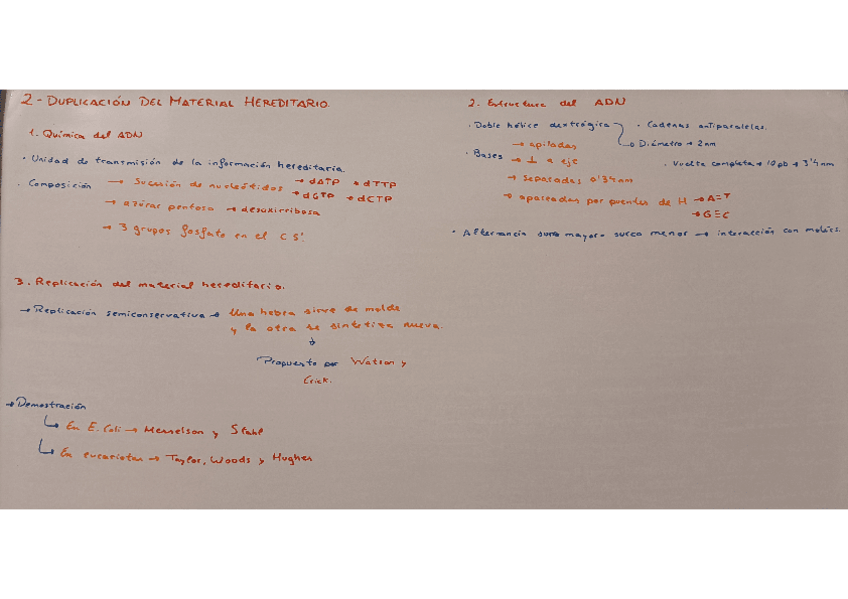 2 - DUPLICACIÓN DEL MATERIAL HEREDITARIO.
1. Química del ADN
· Unidad de transmisión de la información hereditaria
· Composición → Sucesión de nucleótidos → dATP → dTTP
→ dGTP → dCTP
→ azúcar pentosa → desoxirribosa
→ 3 grupos fosfato en el C 5'
3. Replicación del material hereditario.
→ Replicación semiconservativa → Una hebra sirve de molde
y la otra se sintetiza nueva.
↓
Propuesto por Watson y
Crick.
→ Demostración
↳ En E. Coli → Messelson y Stahl
↳ En eucariotas → Taylor, Woods y Hughes
2. Estructura del ADN
· Doble hélice dextrógira · Cadenas antiparalelas.
→ Diámetro → 2 nm
· Vuelta completa → 10 pb → 3'4 nm
· Bases → apiladas
→ ⊥ a eje
→ separadas 0'34 nm
→ apareadas por puentes de H → A=T
→ G≡C
· Alternancia surco mayor - surco menor → interacción con molécs.